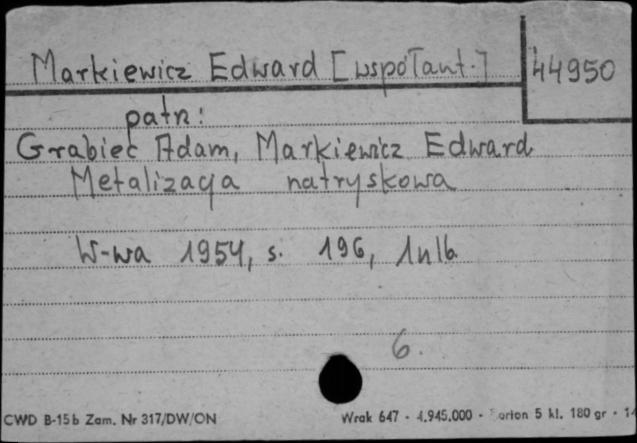 Markiewicz Edward [współaut.]
44950
patrz:
Grabiec Adam, Markiewicz Edward
Metalizacja natryskowa
W-wa 1954, s. 196, 1nlb.
6.
CWD B-15b Zam. Nr 317/DW/ON
Wrak 647 - 4.945.000 - 5 kl. 180 gr -